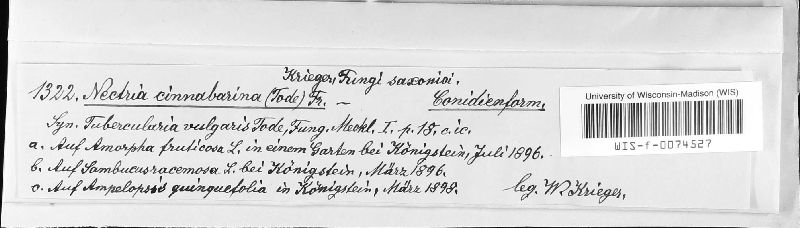 Krieger, Fungi saxonici.
1322. Nectria cinnabarina (Tode) Fr. — Conidienform.
Syn. Tubercularia vulgaris Tode, Fung. Meckl. I. p. 18, c. ic.
a. Auf Amorpha fruticosa L. in einem Garten bei Königstein, Juli 1896.
b. Auf Sambucus racemosa L. bei Königstein, März 1896.
c. Auf Ampelopsis quinquefolia in Königstein, März 1898.
leg. W. Krieger.
University of Wisconsin-Madison (WIS)
WIS-f-0074527